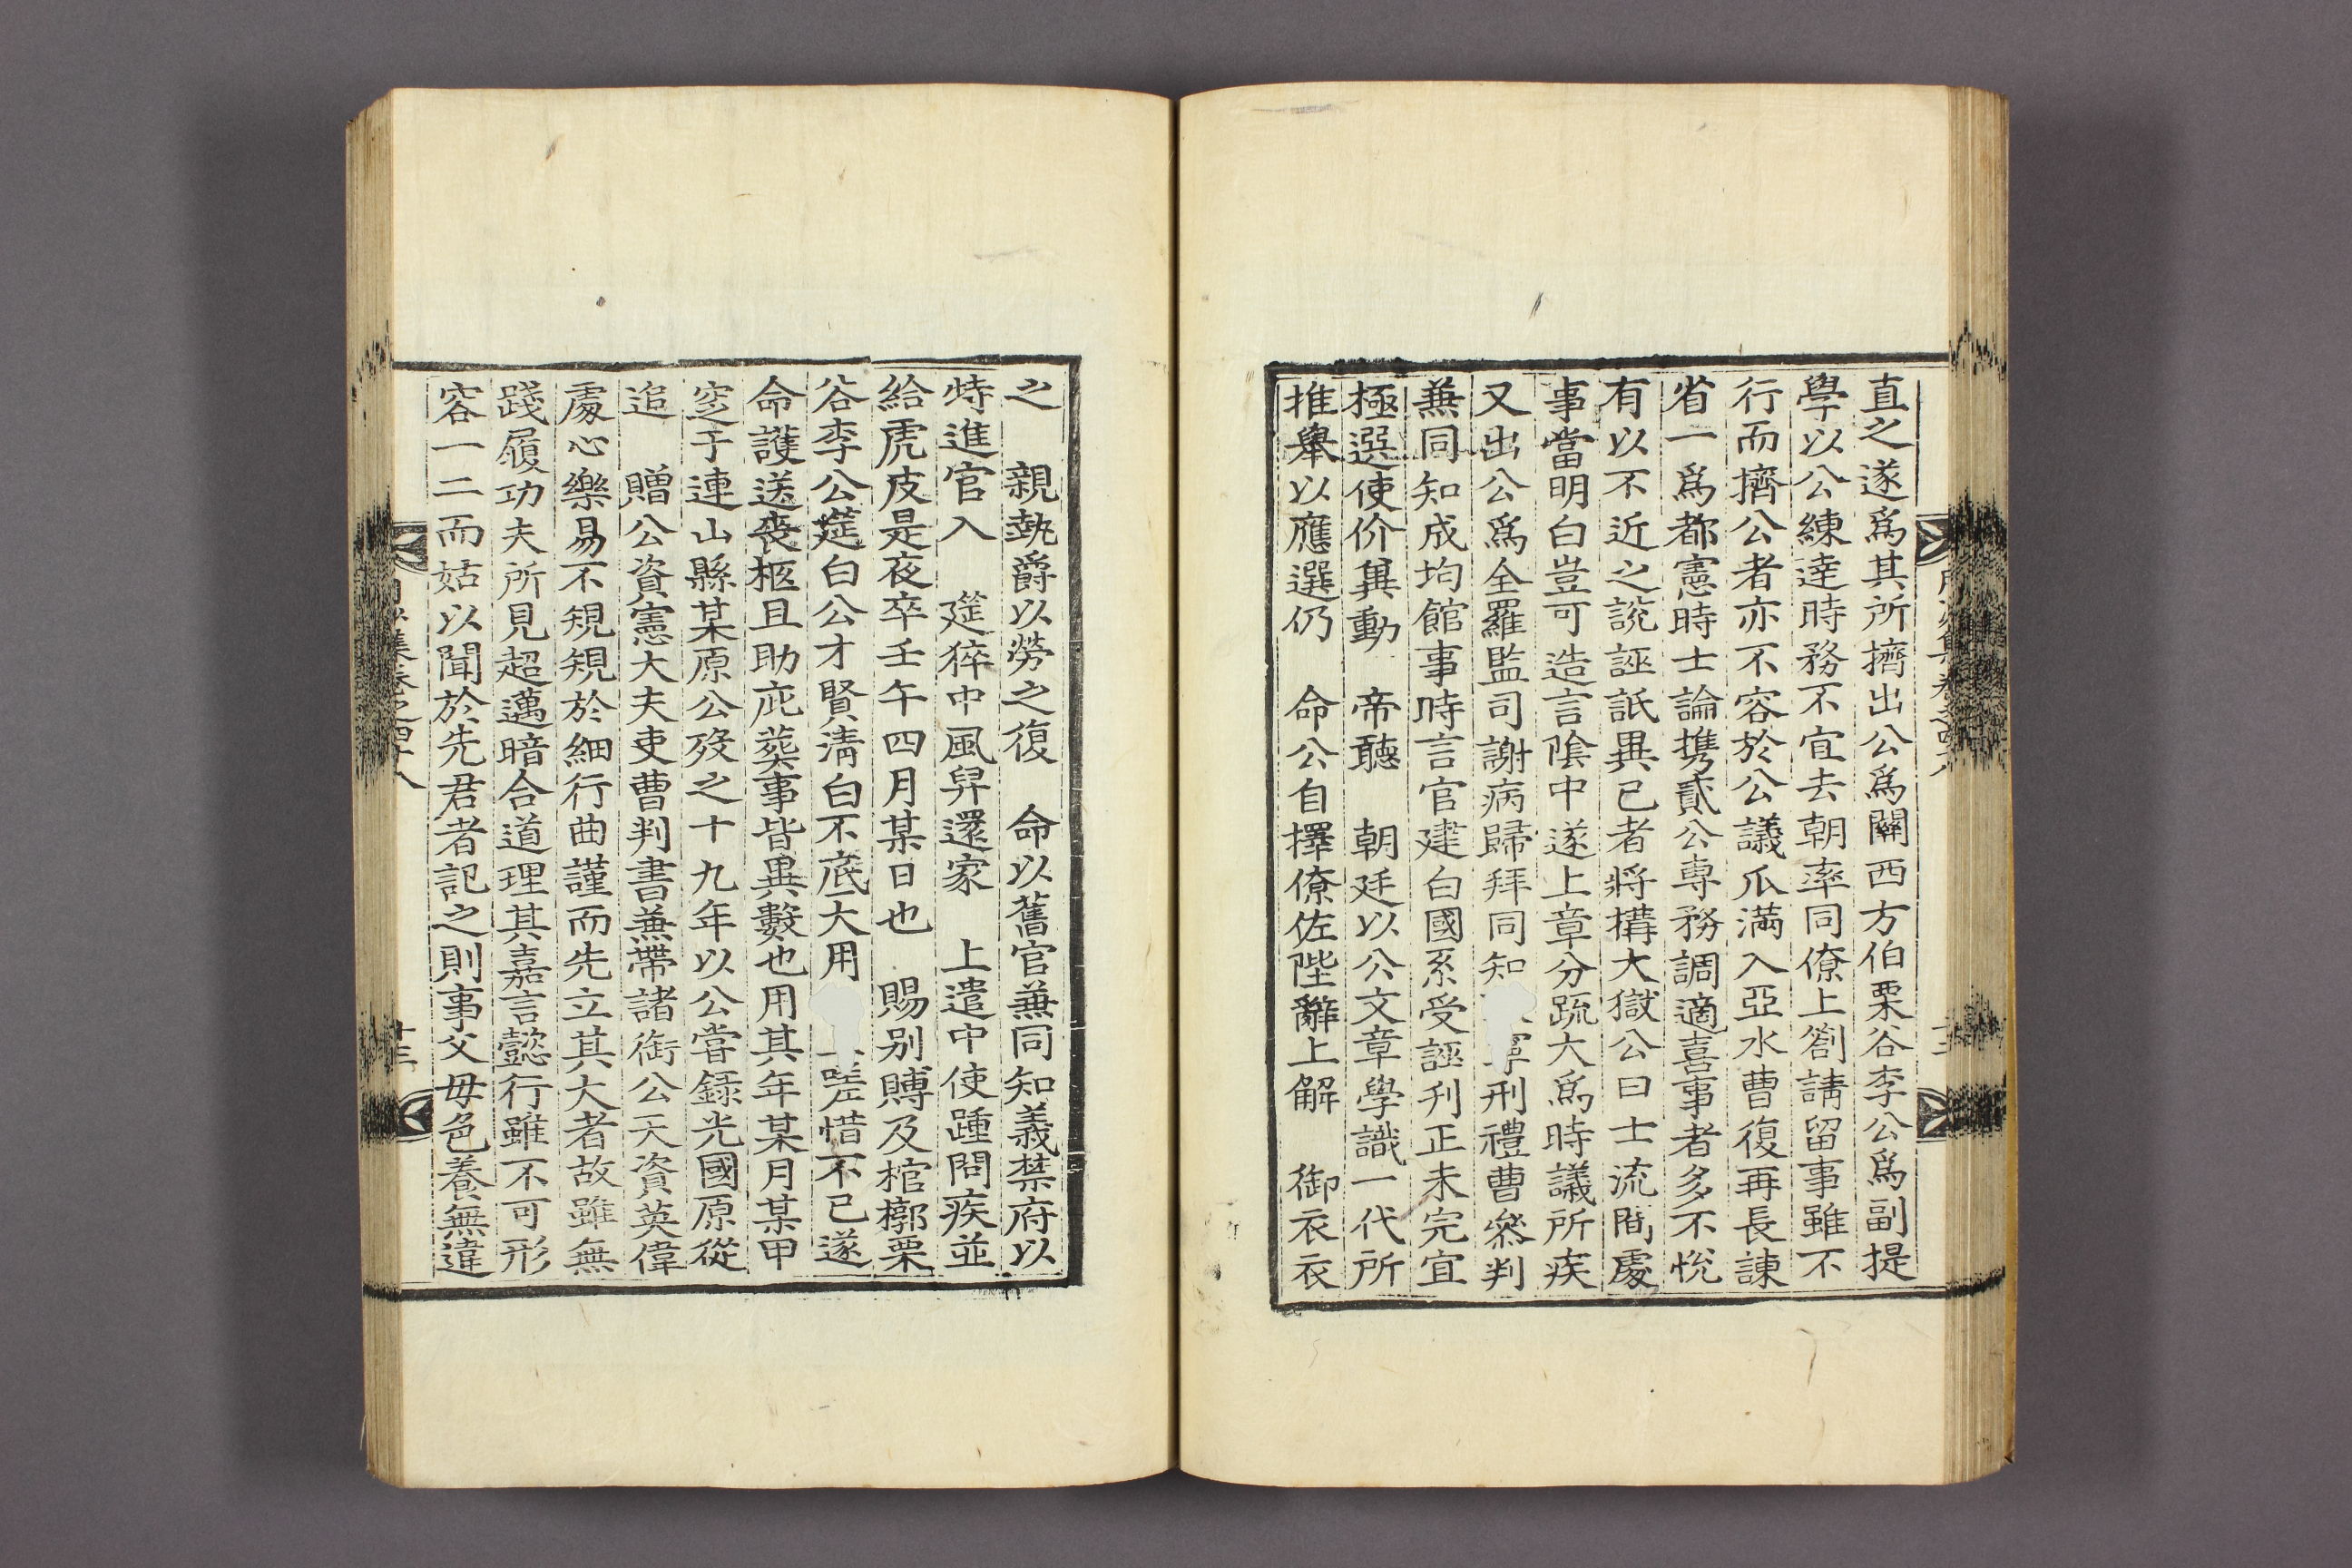 直之遂爲其所擠出公爲關西方伯栗谷李公爲副提
學以公練達時務不宜去朝率同僚上劄請留事雖不
行而擠公者亦不容於公議瓜滿入亞水曹復再長諫
省一爲都憲時士論携貳公專務調適喜事者多不悅
有以不近之說誣詆異己者將構大獄公曰士流間處
事當明白豈可造言陰中遂上章分疏大爲時議所疾
又出公爲全羅監司謝病歸拜同知 刑禮曹叅判
兼同知成均館事時言官建白國系受誣刋正未完宜
極選使价冀動 帝聽 朝廷以公文章學識一代所
推舉以應選仍 命公自擇僚佐陛辭上解 御衣衣
之 親執爵以勞之復 命以舊官兼同知義禁府以
特進官入 筵猝中風舁還家 上遣中使踵問疾並
給虎皮是夜卒壬午四月某日也 賜别賻及棺槨栗
谷李公筵白公才賢淸白不底大用 嗟惜不已遂
命護送喪柩且助庇葬事皆異數也用其年某月某甲
窆于連山縣某原公歿之十九年以公嘗錄光國原從
追 贈公資憲大夫吏曹判書兼帶諸銜公天資英偉
處心樂易不規規於細行曲謹而先立其大者故雖無
踐履功夫所見超邁暗合道理其嘉言懿行雖不可形
容一二而姑以聞於先君者記之則事父母色養無違
集卷之四十八
十三